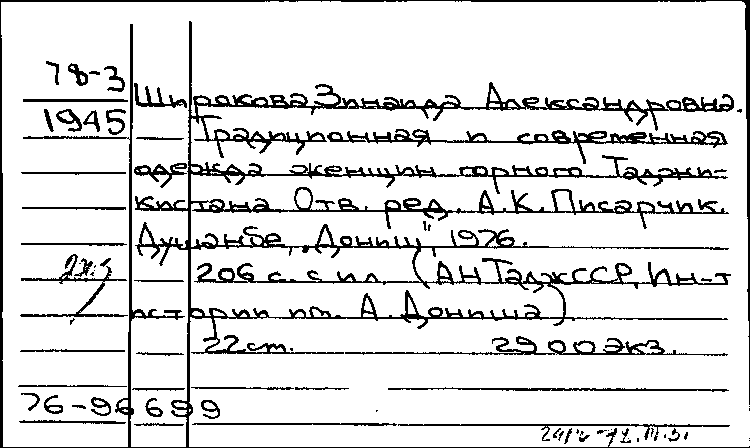 78-3
1945
Широкова, Зинаида Александровна.
Традиционная и современная
одежда женщин горного Таджи-
кистана Отв. ред. А.К. Писарчик.
Душанбе, „Дониш", 1976.
206 с. с ил. (АН ТаджССР, Ин-т
истории им. А. Дониша).
22 см. 2900 экз.
76-96699